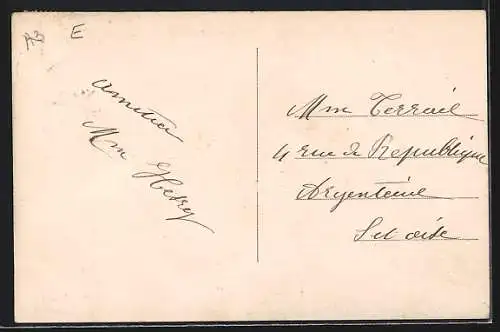 E
amitier
Mme
Mme Terrail
4 rue de Republique
Argenteuil
S et oise